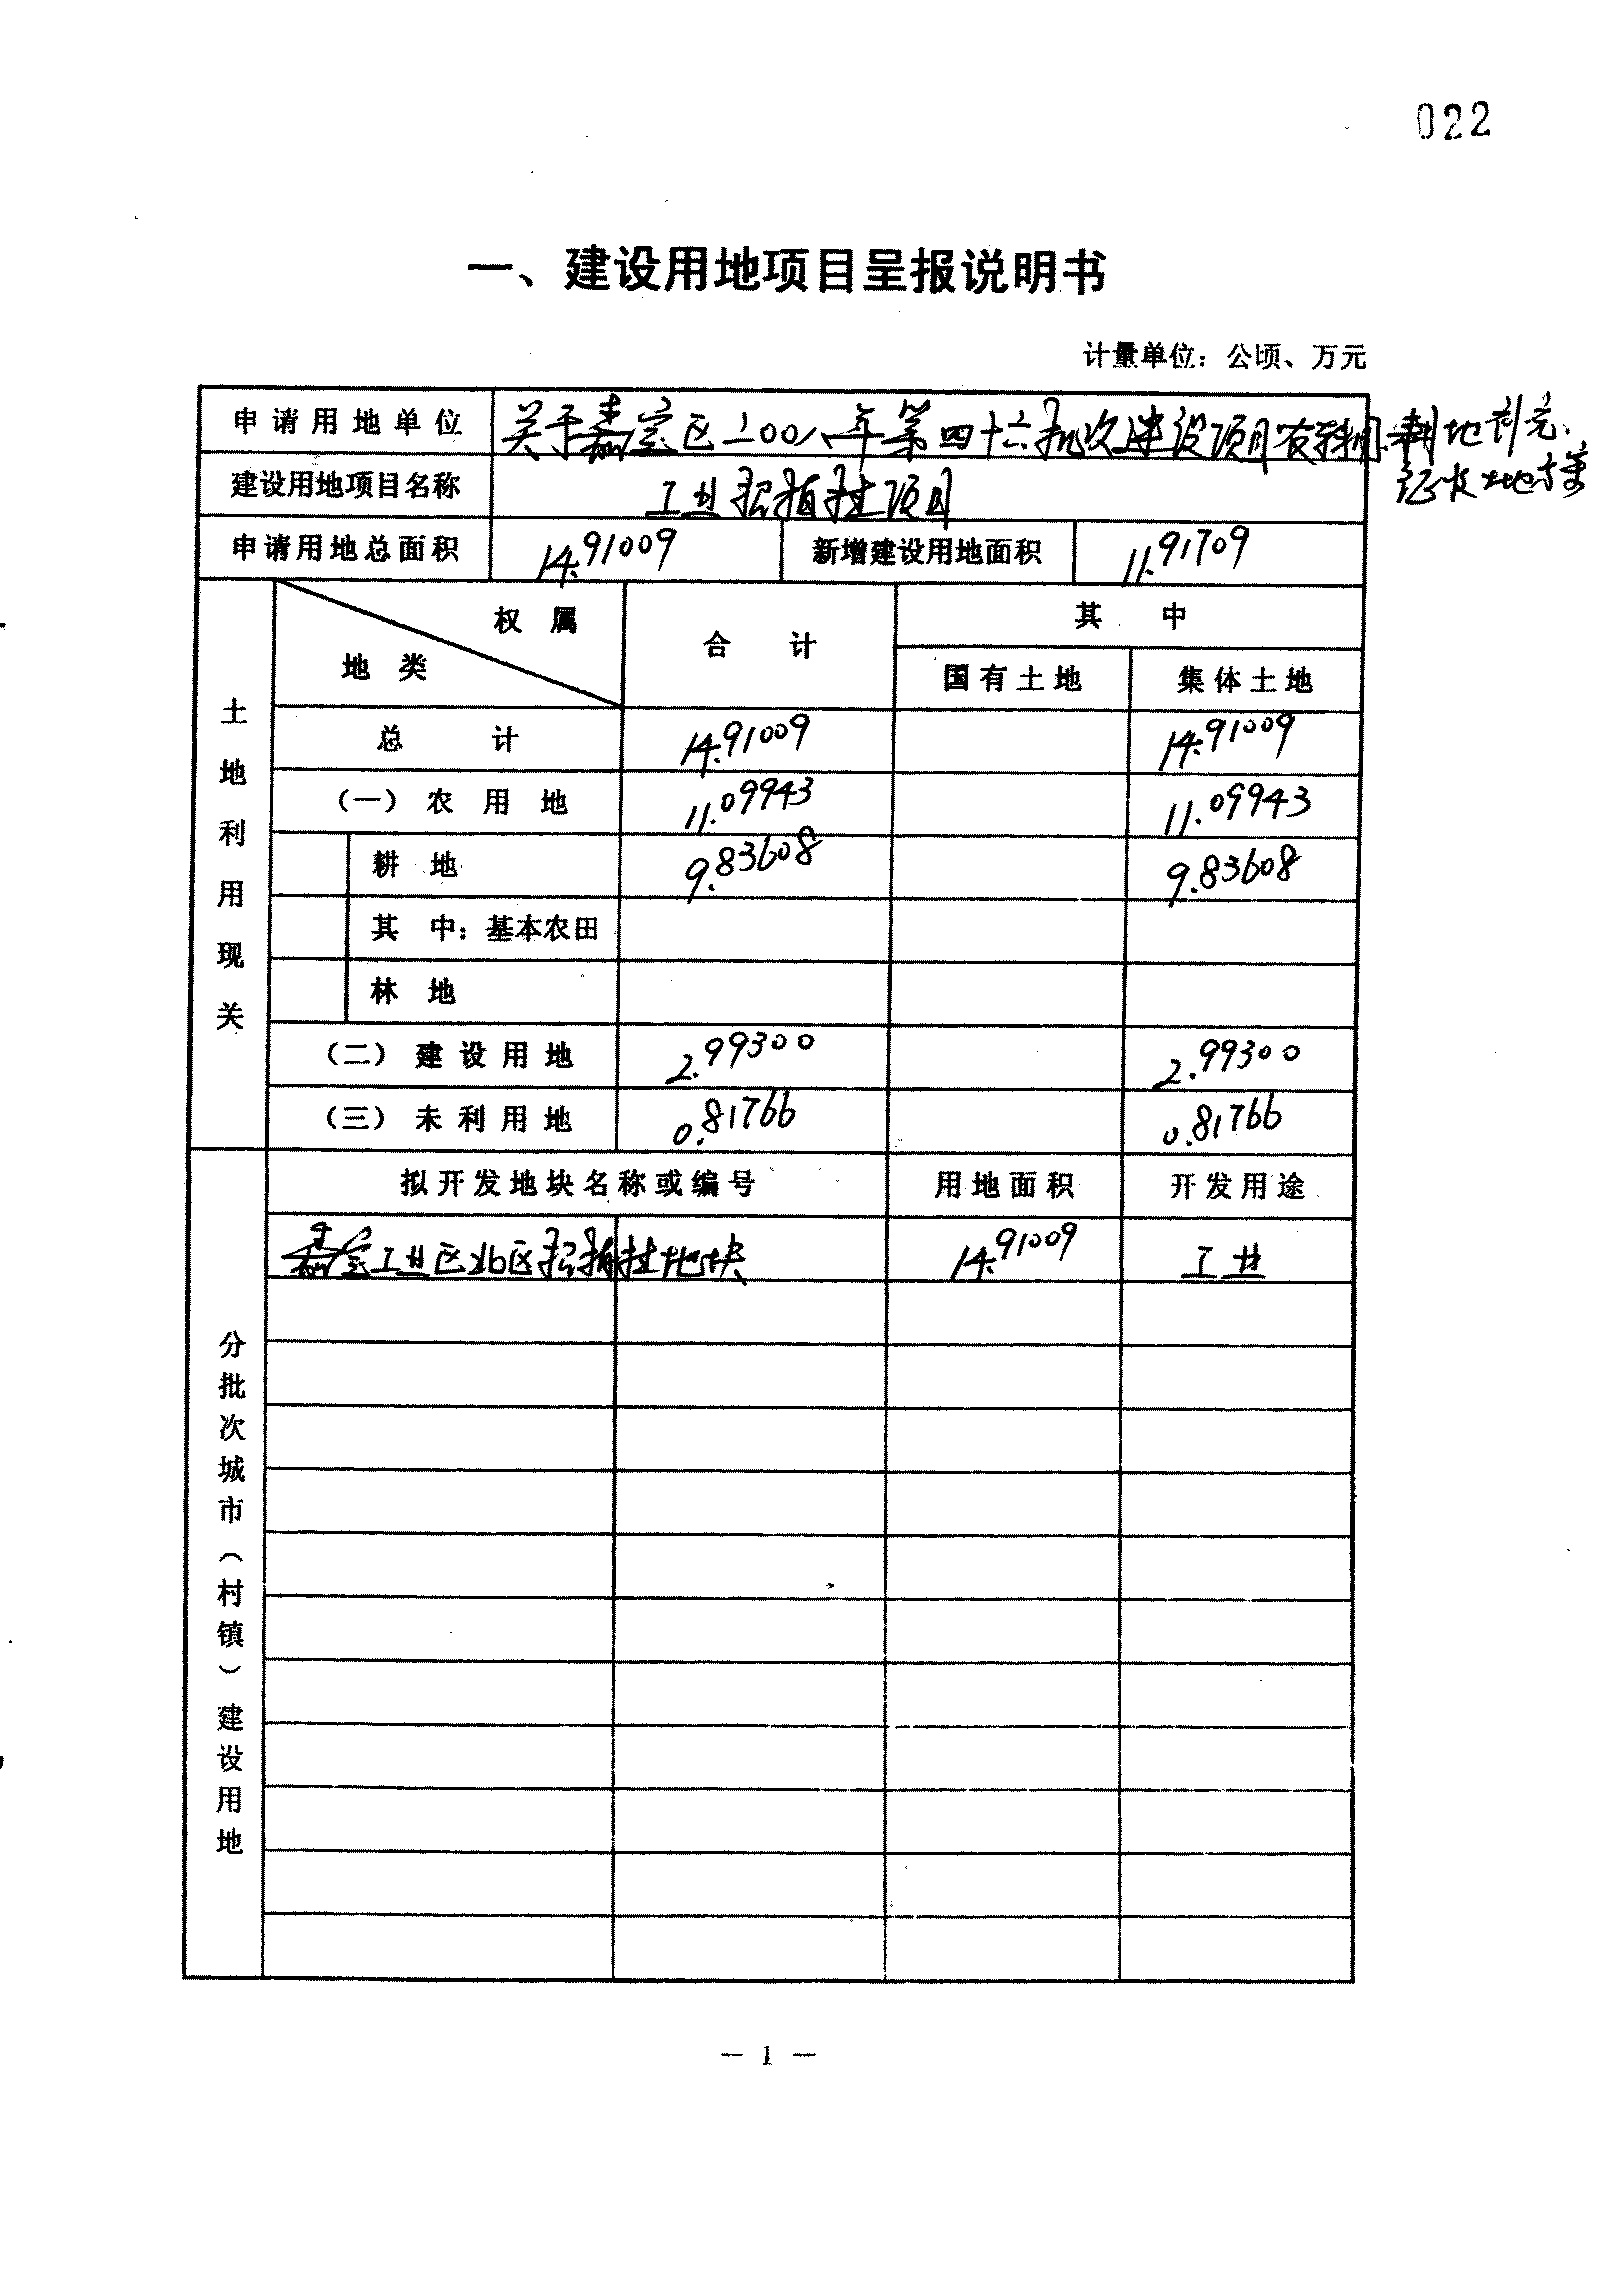 022
一、建设用地项目呈报说明书
计量单位：公顷、万元
申请用地单位 关于嘉定区二00八年第四十六批次建设项目农转用、耕地补充、
征收土地方案
建设用地项目名称 工业招拍挂项目
申请用地总面积 14.91009 新增建设用地面积 11.91709
土地利用现关
权属
地类
合计
其中
国有土地 集体土地
总计 14.91009 14.91009
（一）农用地 11.09943 11.09943
耕地 9.83608 9.83608
其中：基本农田
林地
（二）建设用地 2.99300 2.99300
（三）未利用地 0.81766 0.81766
分批次城市（村镇）建设用地
拟开发地块名称或编号 用地面积 开发用途
嘉定工业区北区招拍挂地块 14.91009 工业
— 1 —